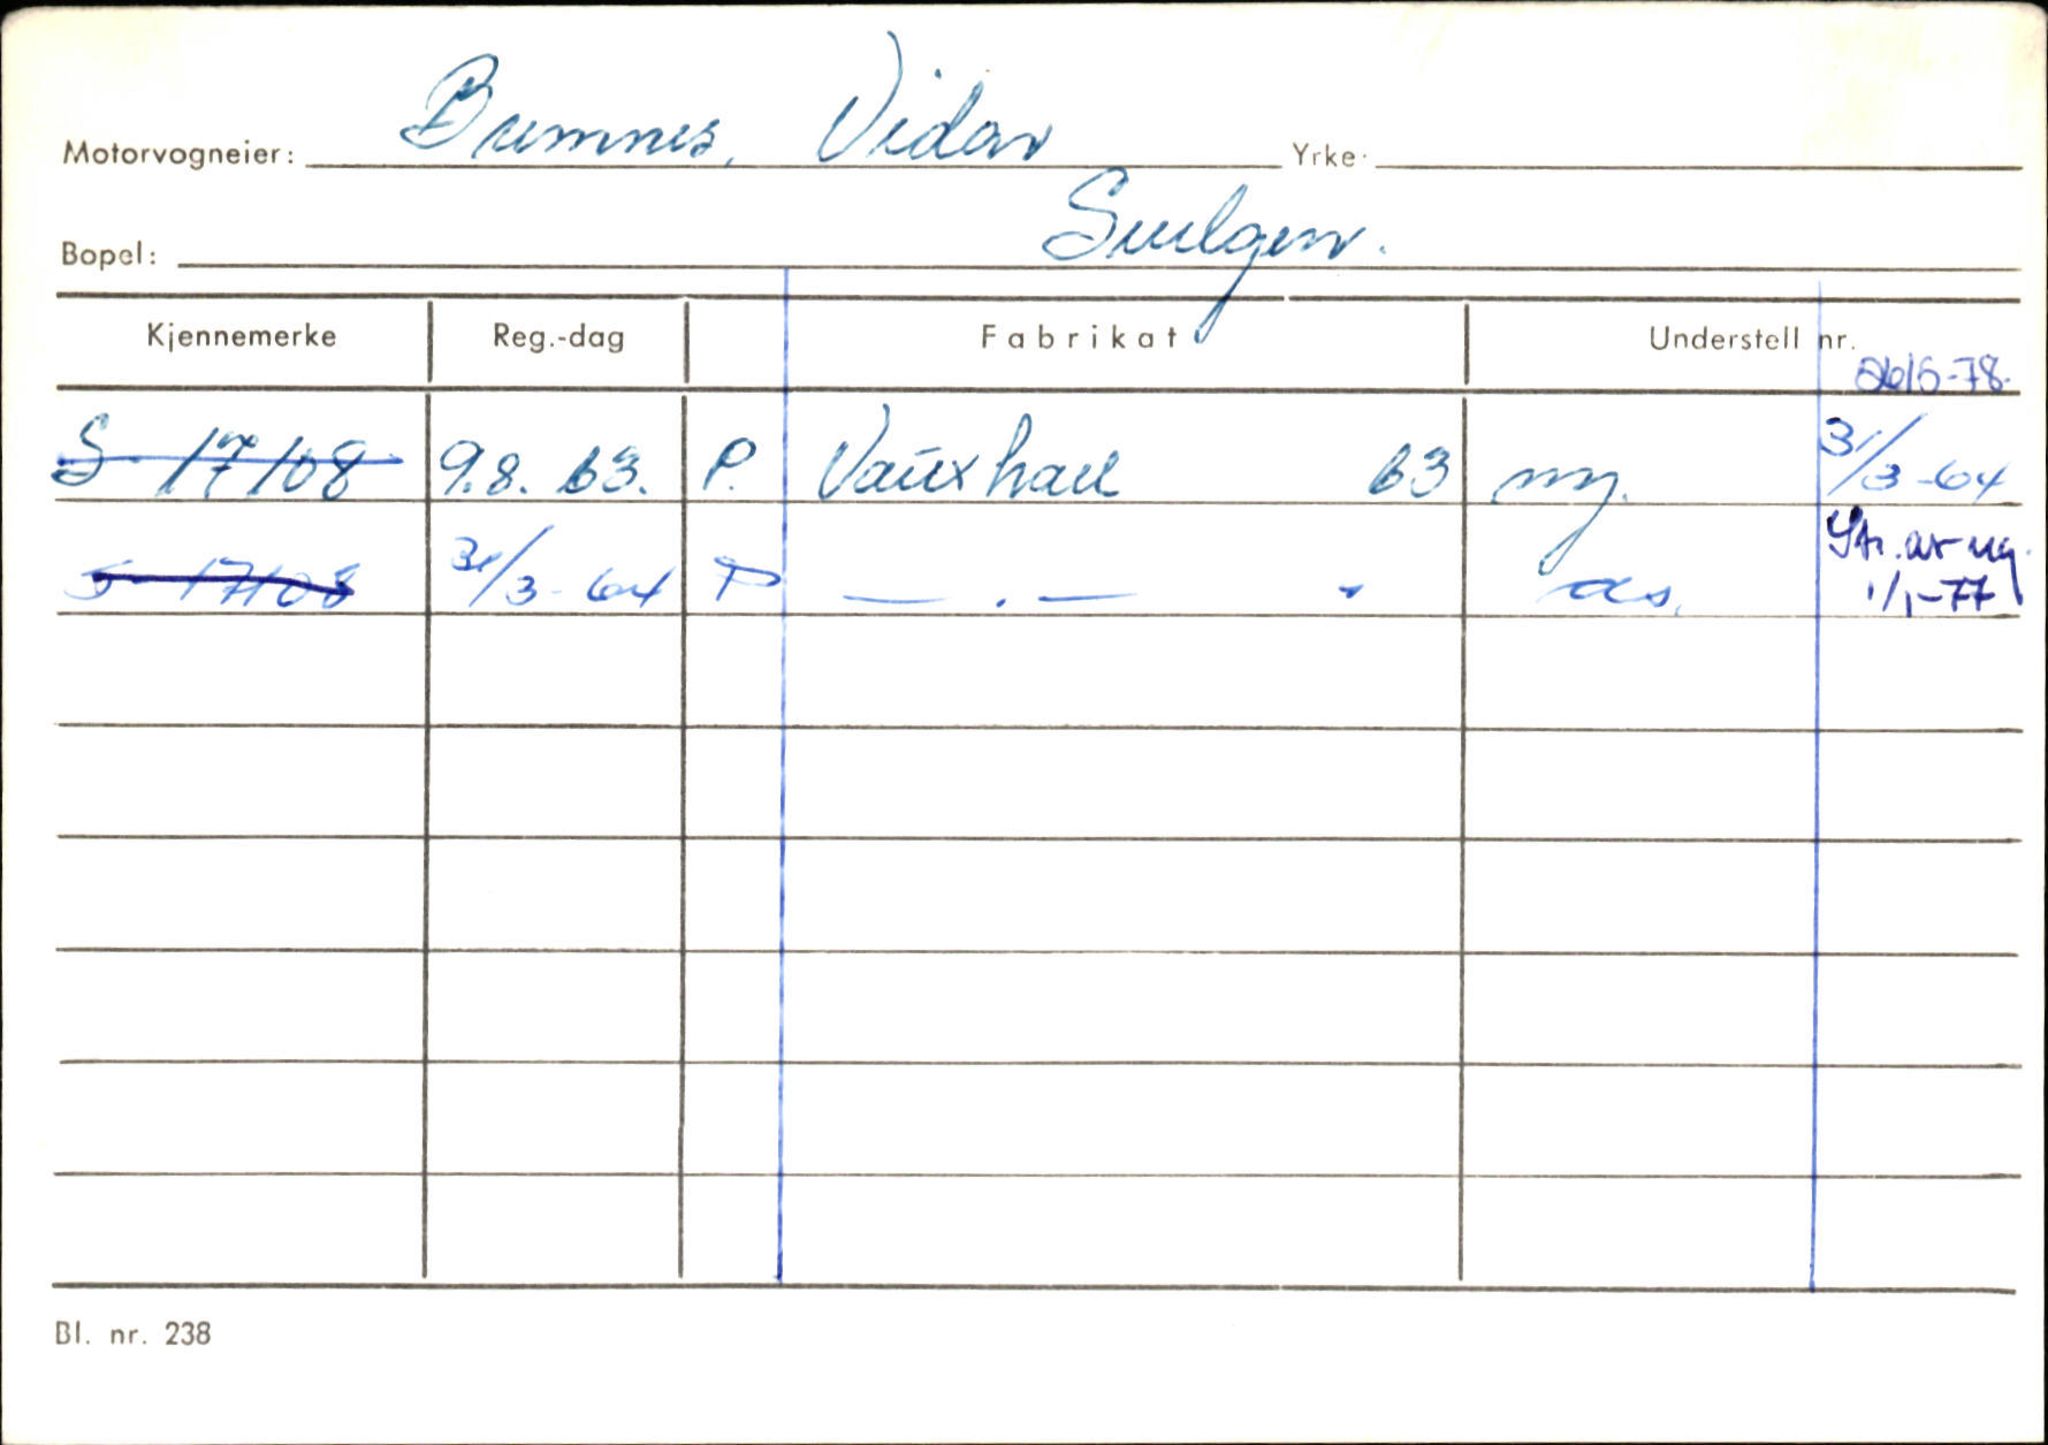 Motorvogneier: Bremnes, Vidar Yrke:
Bopel: Svelgen.
Kjennemerke Reg.-dag Fabrikat Understell nr.
26/5-78.
S 17108 9.8. 63. P. Vauxhall 63 ny. 31/3-64
S 17108 31/3-64 P — . — " as.
Str. av reg. 1/1-77
Bl. nr. 238